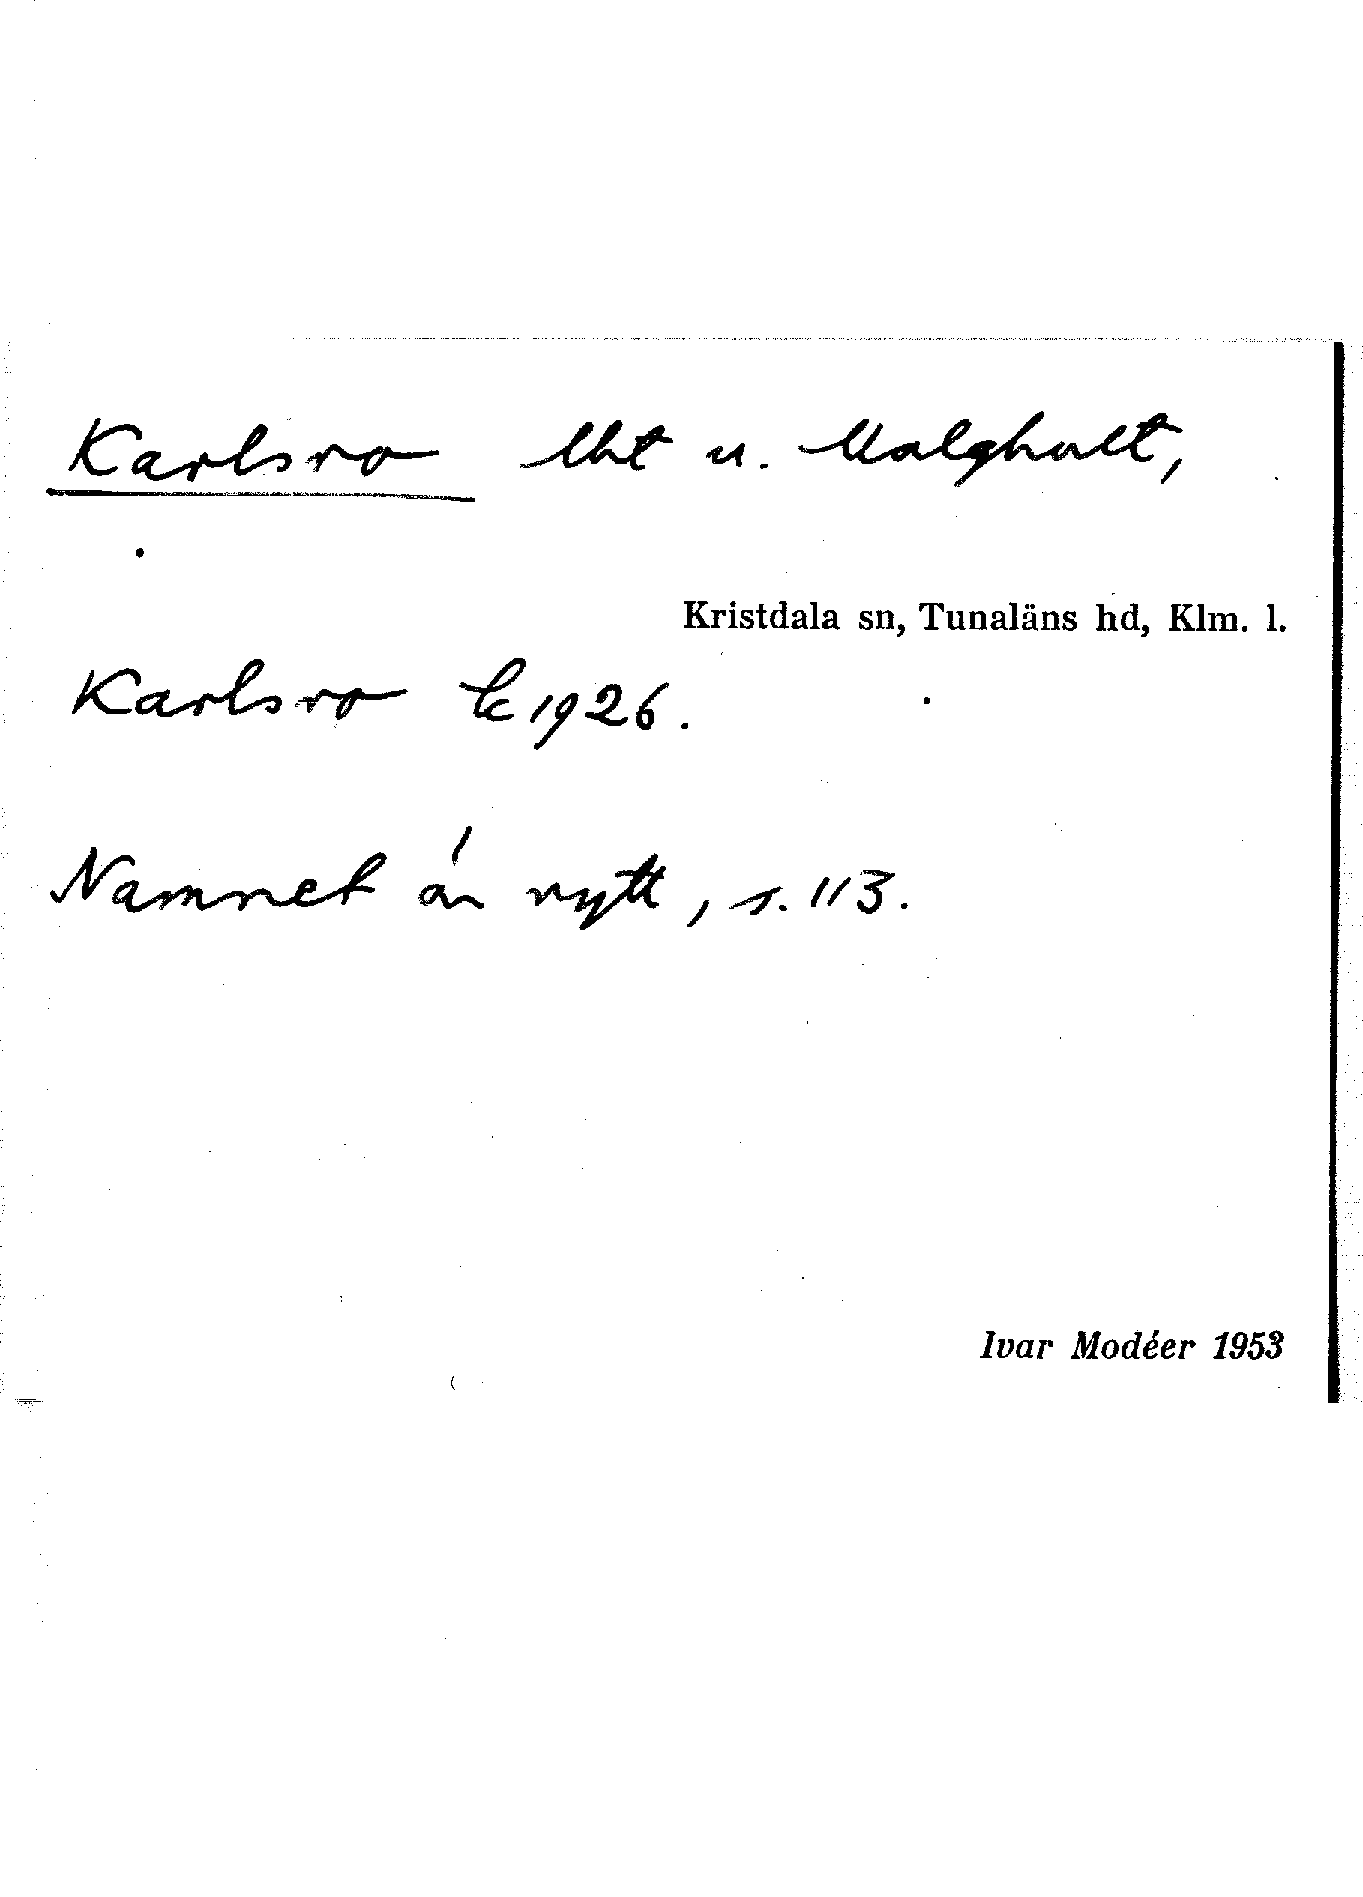 Karlsro lht u. Malghult,
Kristdala sn, Tunaläns hd, Klm. l.
Karlsro 1926.
Namnet är nytt, s. 113.
Ivar Modéer 1953